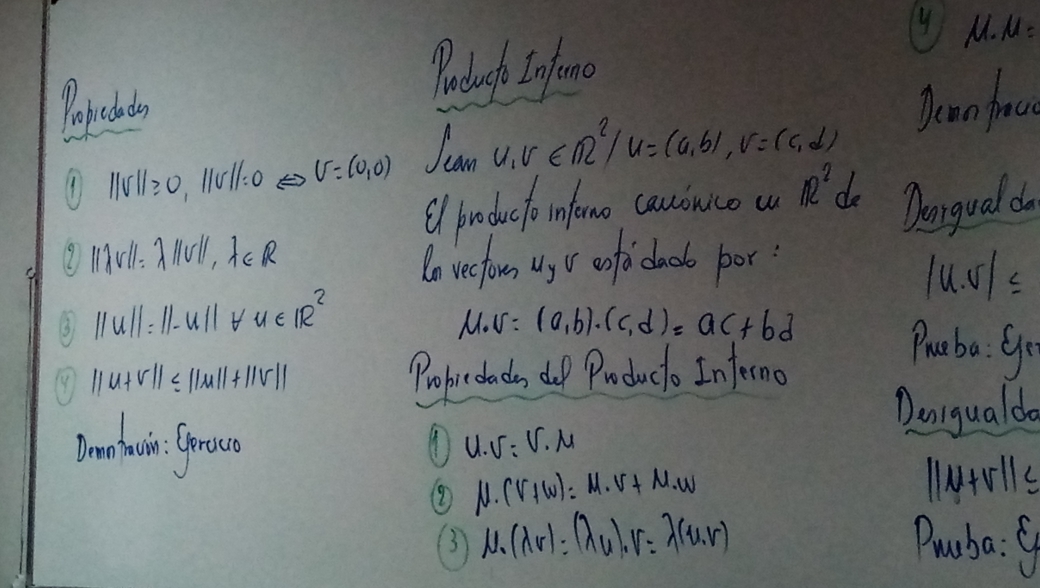 Propiedades
① ||v||≥0, ||v||=0 ⇔ v=(0,0)
② ||λv||= λ||v||, λ∈R
③ ||u||=||-u|| ∀ u∈IR²
④ ||u+v||≤||u||+||v||
Demostración: Ejercicio
Producto Interno
Sean u,v ∈ IR² / u=(a,b), v=(c,d)
El producto interno canónico en IR² de
los vectores u y v está dado por:
u.v= (a,b).(c,d)= ac+bd
Propiedades del Producto Interno
① u.v= v.u
② u.(v+w)= u.v+ u.w
③ u.(λv)=(λu).v= λ(u.v)
④ u.u=
Demostracio
Desigualda
|u.v| ≤
Prueba: Eje
Desigualda
||u+v||≤
Prueba: Ej